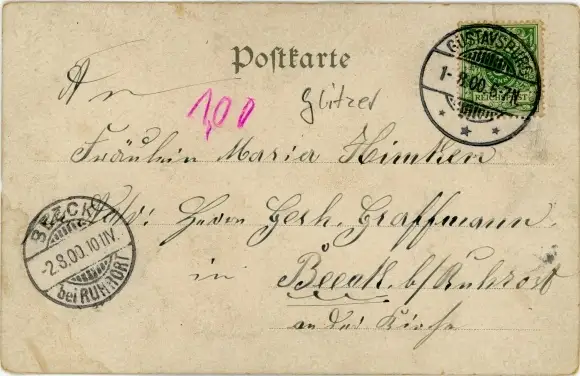 Postkarte
An
1,00
Glitzer
Fräulein Maria Himken
Adr: Herrn Gerh. Graffmann
in Beeck b/Ruhrort
an der Kirche
GUSTAVSBURG
1-8.00.6-7N.
REICHSPOST
BEECK
-2.8.00.10-11V.
bei RUHRORT